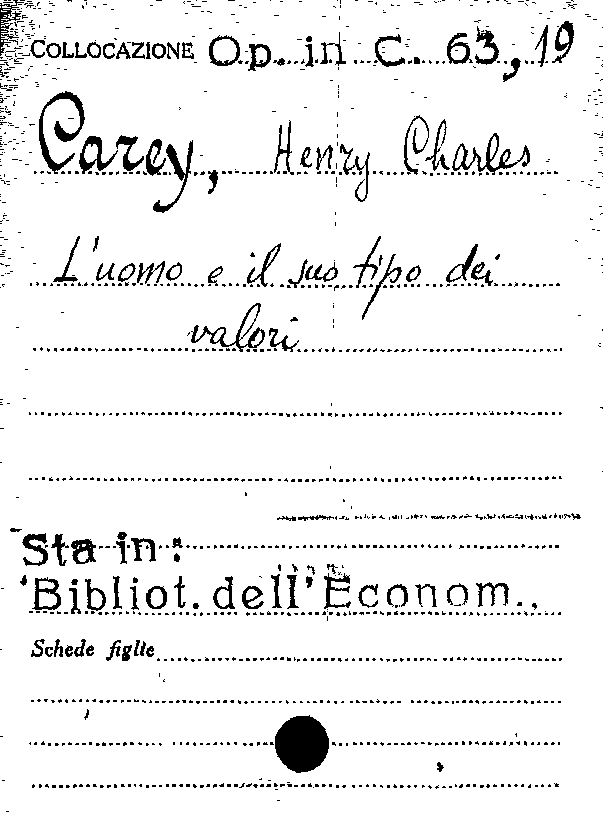 COLLOCAZIONE Op. in C. 63, 19
Carey, Henry Charles
L'uomo e il suo tipo dei
valori
Sta in:
'Bibliot. dell'Econom.,
Schede figlie